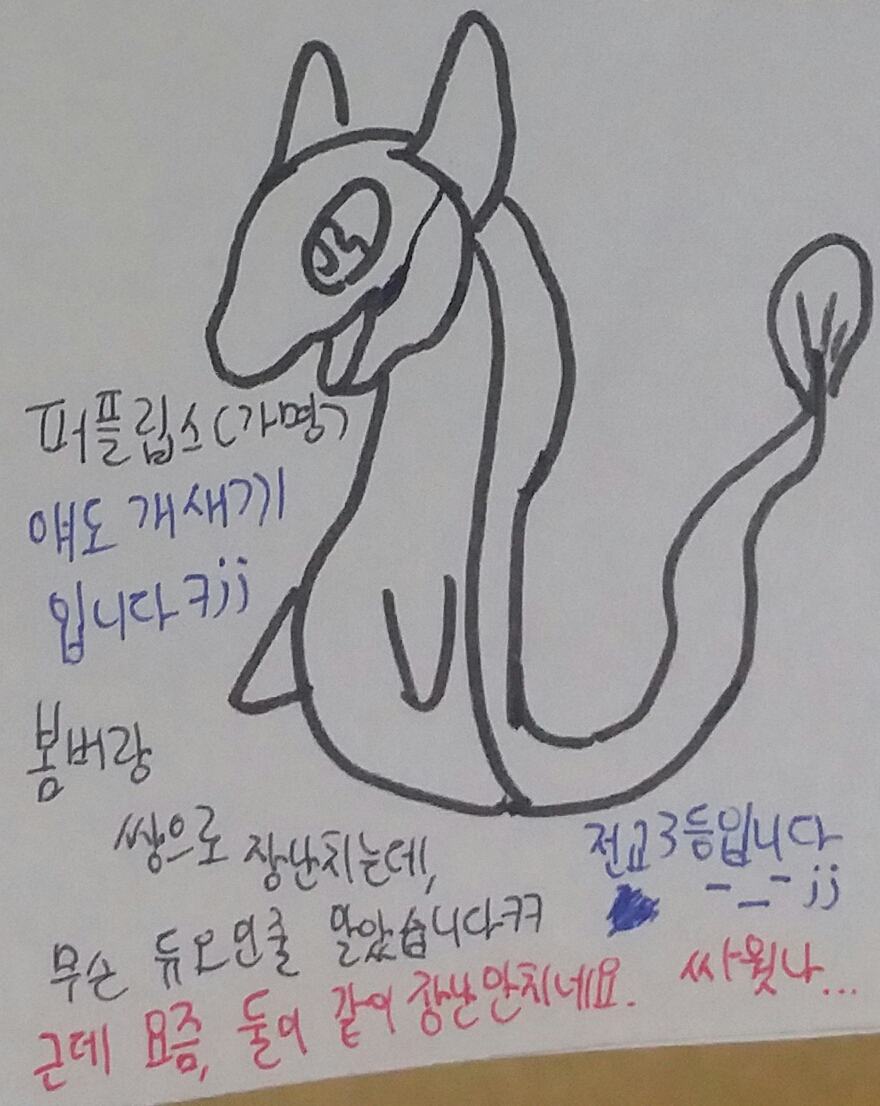 퍼플립스(가명)
얘도 개새끼
입니다ㅋjj
봄버랑
쌍으로 장난치는데,
전교3등입니다
-_-jj
무슨 듀오인줄 알았습니다ㅋㅋ
근데 요즘, 둘이 같이 장난안치네요. 싸웠나...